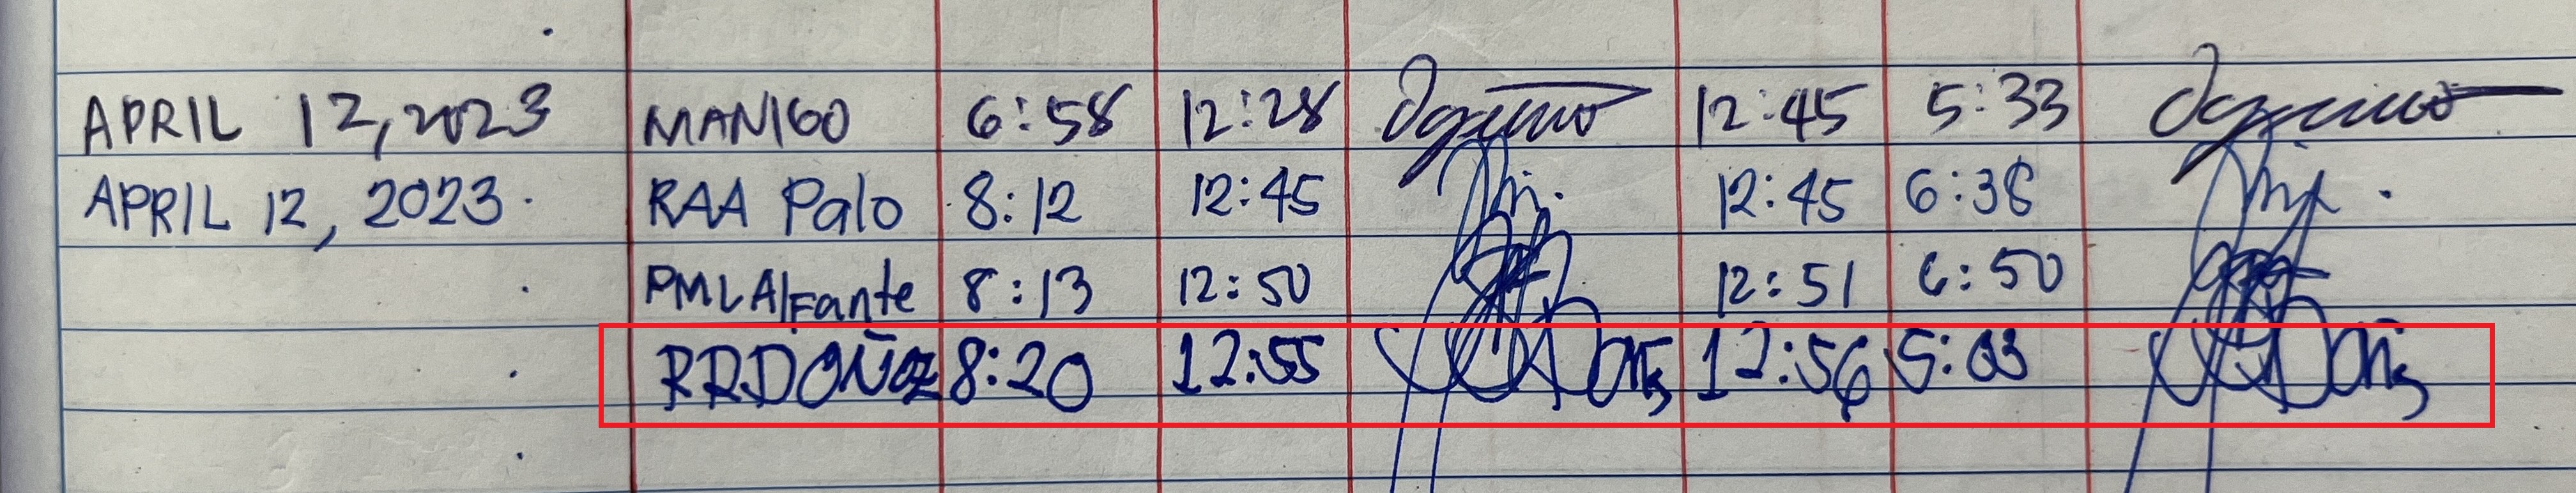 APRIL 12, 2023 MANIGO 6:58 12:28 12:45 5:33
APRIL 12, 2023. RAA Palo 8:12 12:45 12:45 6:38
PMLAlFante 8:13 12:50 12:51 6:50
RRDOÑOZ 8:20 12:55 12:56 5:03